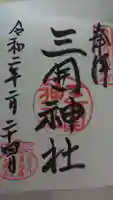 奉拝
三国神社
令和二年二月二十四日